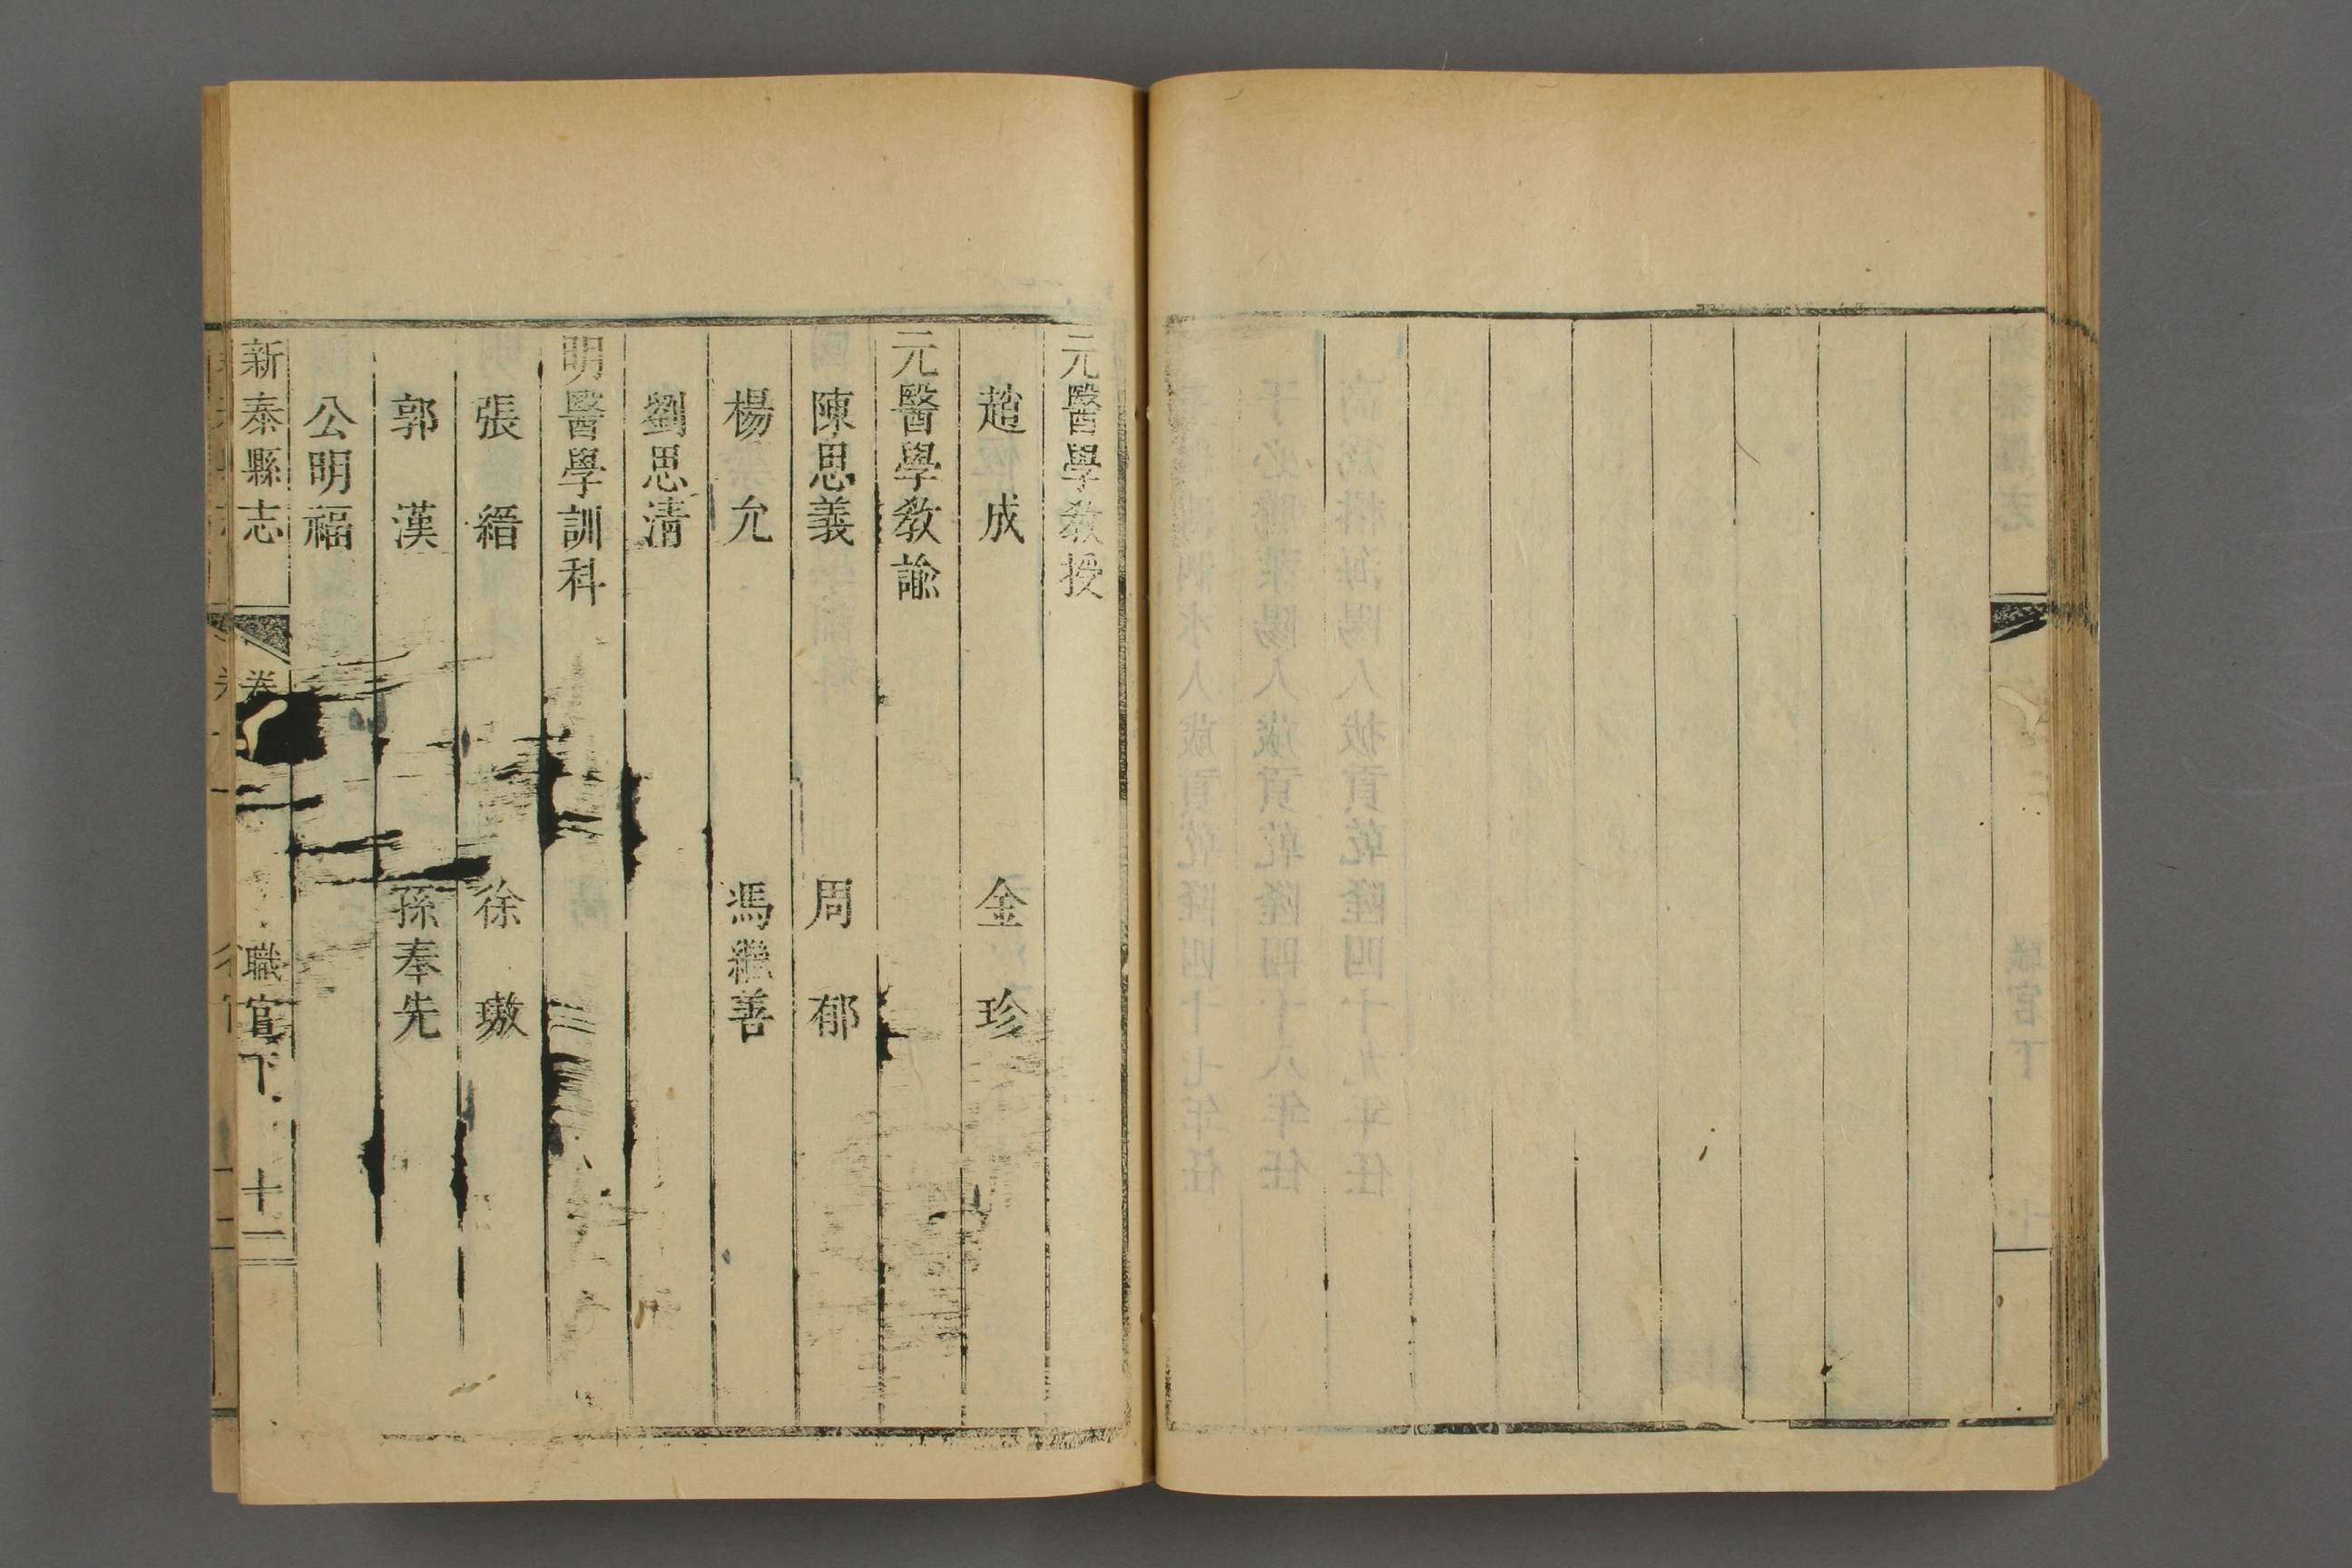 元醫學教授
趙成　金珍
元醫學教諭
陳思義　周郁
楊允　馮繼善
劉思清
明醫學訓科
張縉　徐璈
郭漢　孫奉先
公明福
新泰縣志　卷　職官下　十一